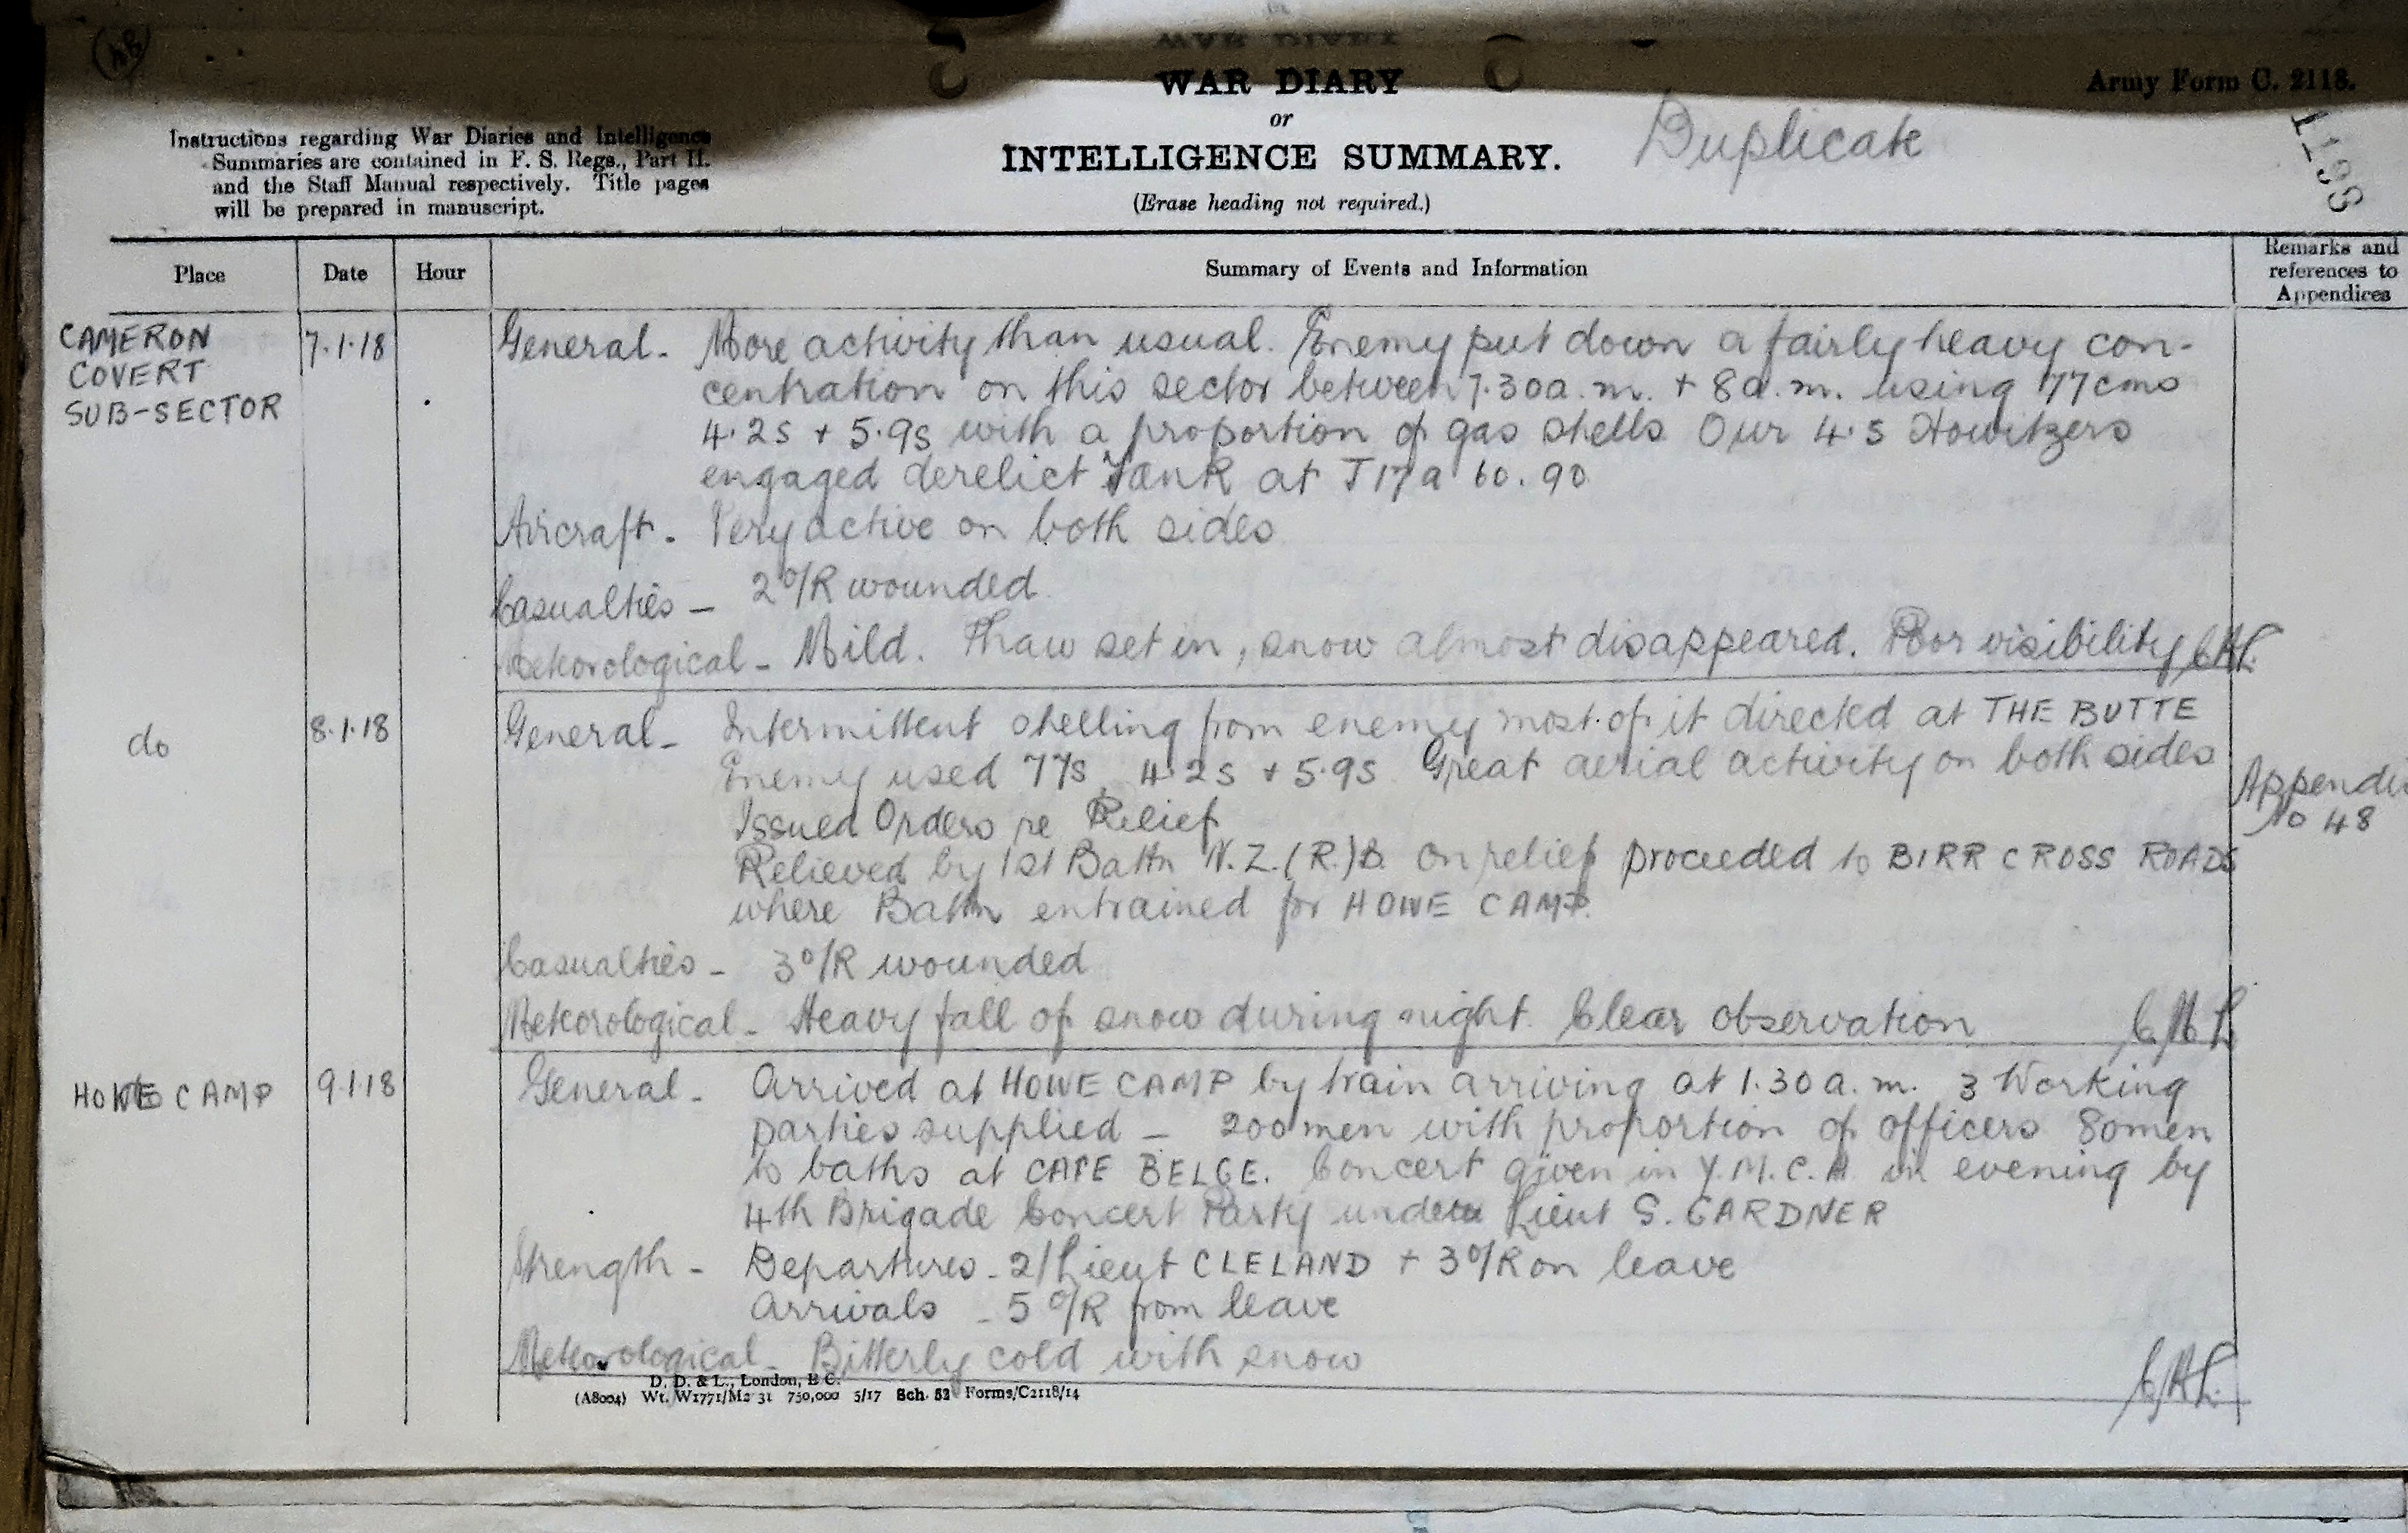 (48)
WAR DIARY
or
INTELLIGENCE SUMMARY.
(Erase heading not required.)
Duplicate
Army Form C. 2118.
1198
Instructions regarding War Diaries and Intelligence
Summaries are contained in F. S. Regs., Part II.
and the Staff Manual respectively. Title pages
will be prepared in manuscript.
Place Date Hour Summary of Events and Information Remarks and
references to
Appendices
CAMERON
COVERT
SUB-SECTOR
7.1.18
General - More activity than usual. Enemy put down a fairly heavy con-
centration on this sector between 7.30a.m. + 8a.m. using 77cms
4.2s + 5.9s with a proportion of gas shells Our 4.5 Howitzers
engaged derelict Tank at J17a 60.90
Aircraft - Very active on both sides
Casualties - 2 O/R wounded
Meteorological - Mild. Thaw set in, snow almost disappeared. Poor visibility
do 8.1.18
General - Intermittent shelling from enemy most of it directed at THE BUTTE
Enemy used 77s, 4.2s + 5.9s. Great aerial activity on both sides
Issued Orders re Relief
Appendi
No 48
Relieved by 1st Battn N.Z.(R.)B. On relief proceeded to BIRR CROSS ROADS
where Battn entrained for HOWE CAMP.
Casualties - 3 O/R wounded
Meteorological - Heavy fall of snow during night. Clear observation
HOWE CAMP 9.1.18
General - Arrived at HOWE CAMP by train arriving at 1.30a.m. 3 Working
parties supplied - 200 men with proportion of officers 80men
to baths at CAFE BELGE. Concert given in Y.M.C.A. in evening by
4th Brigade Concert Party under Lieut S. GARDNER
Strength - Departures - 2/Lieut CLELAND + 3 O/R on leave
Arrivals - 5 O/R from leave
Meteorological - Bitterly cold with snow
D. D. & L., London, E C.
(A8004) Wt. W1771/M2 31 750,000 5/17 Sch. 52 Forms/C2118/14